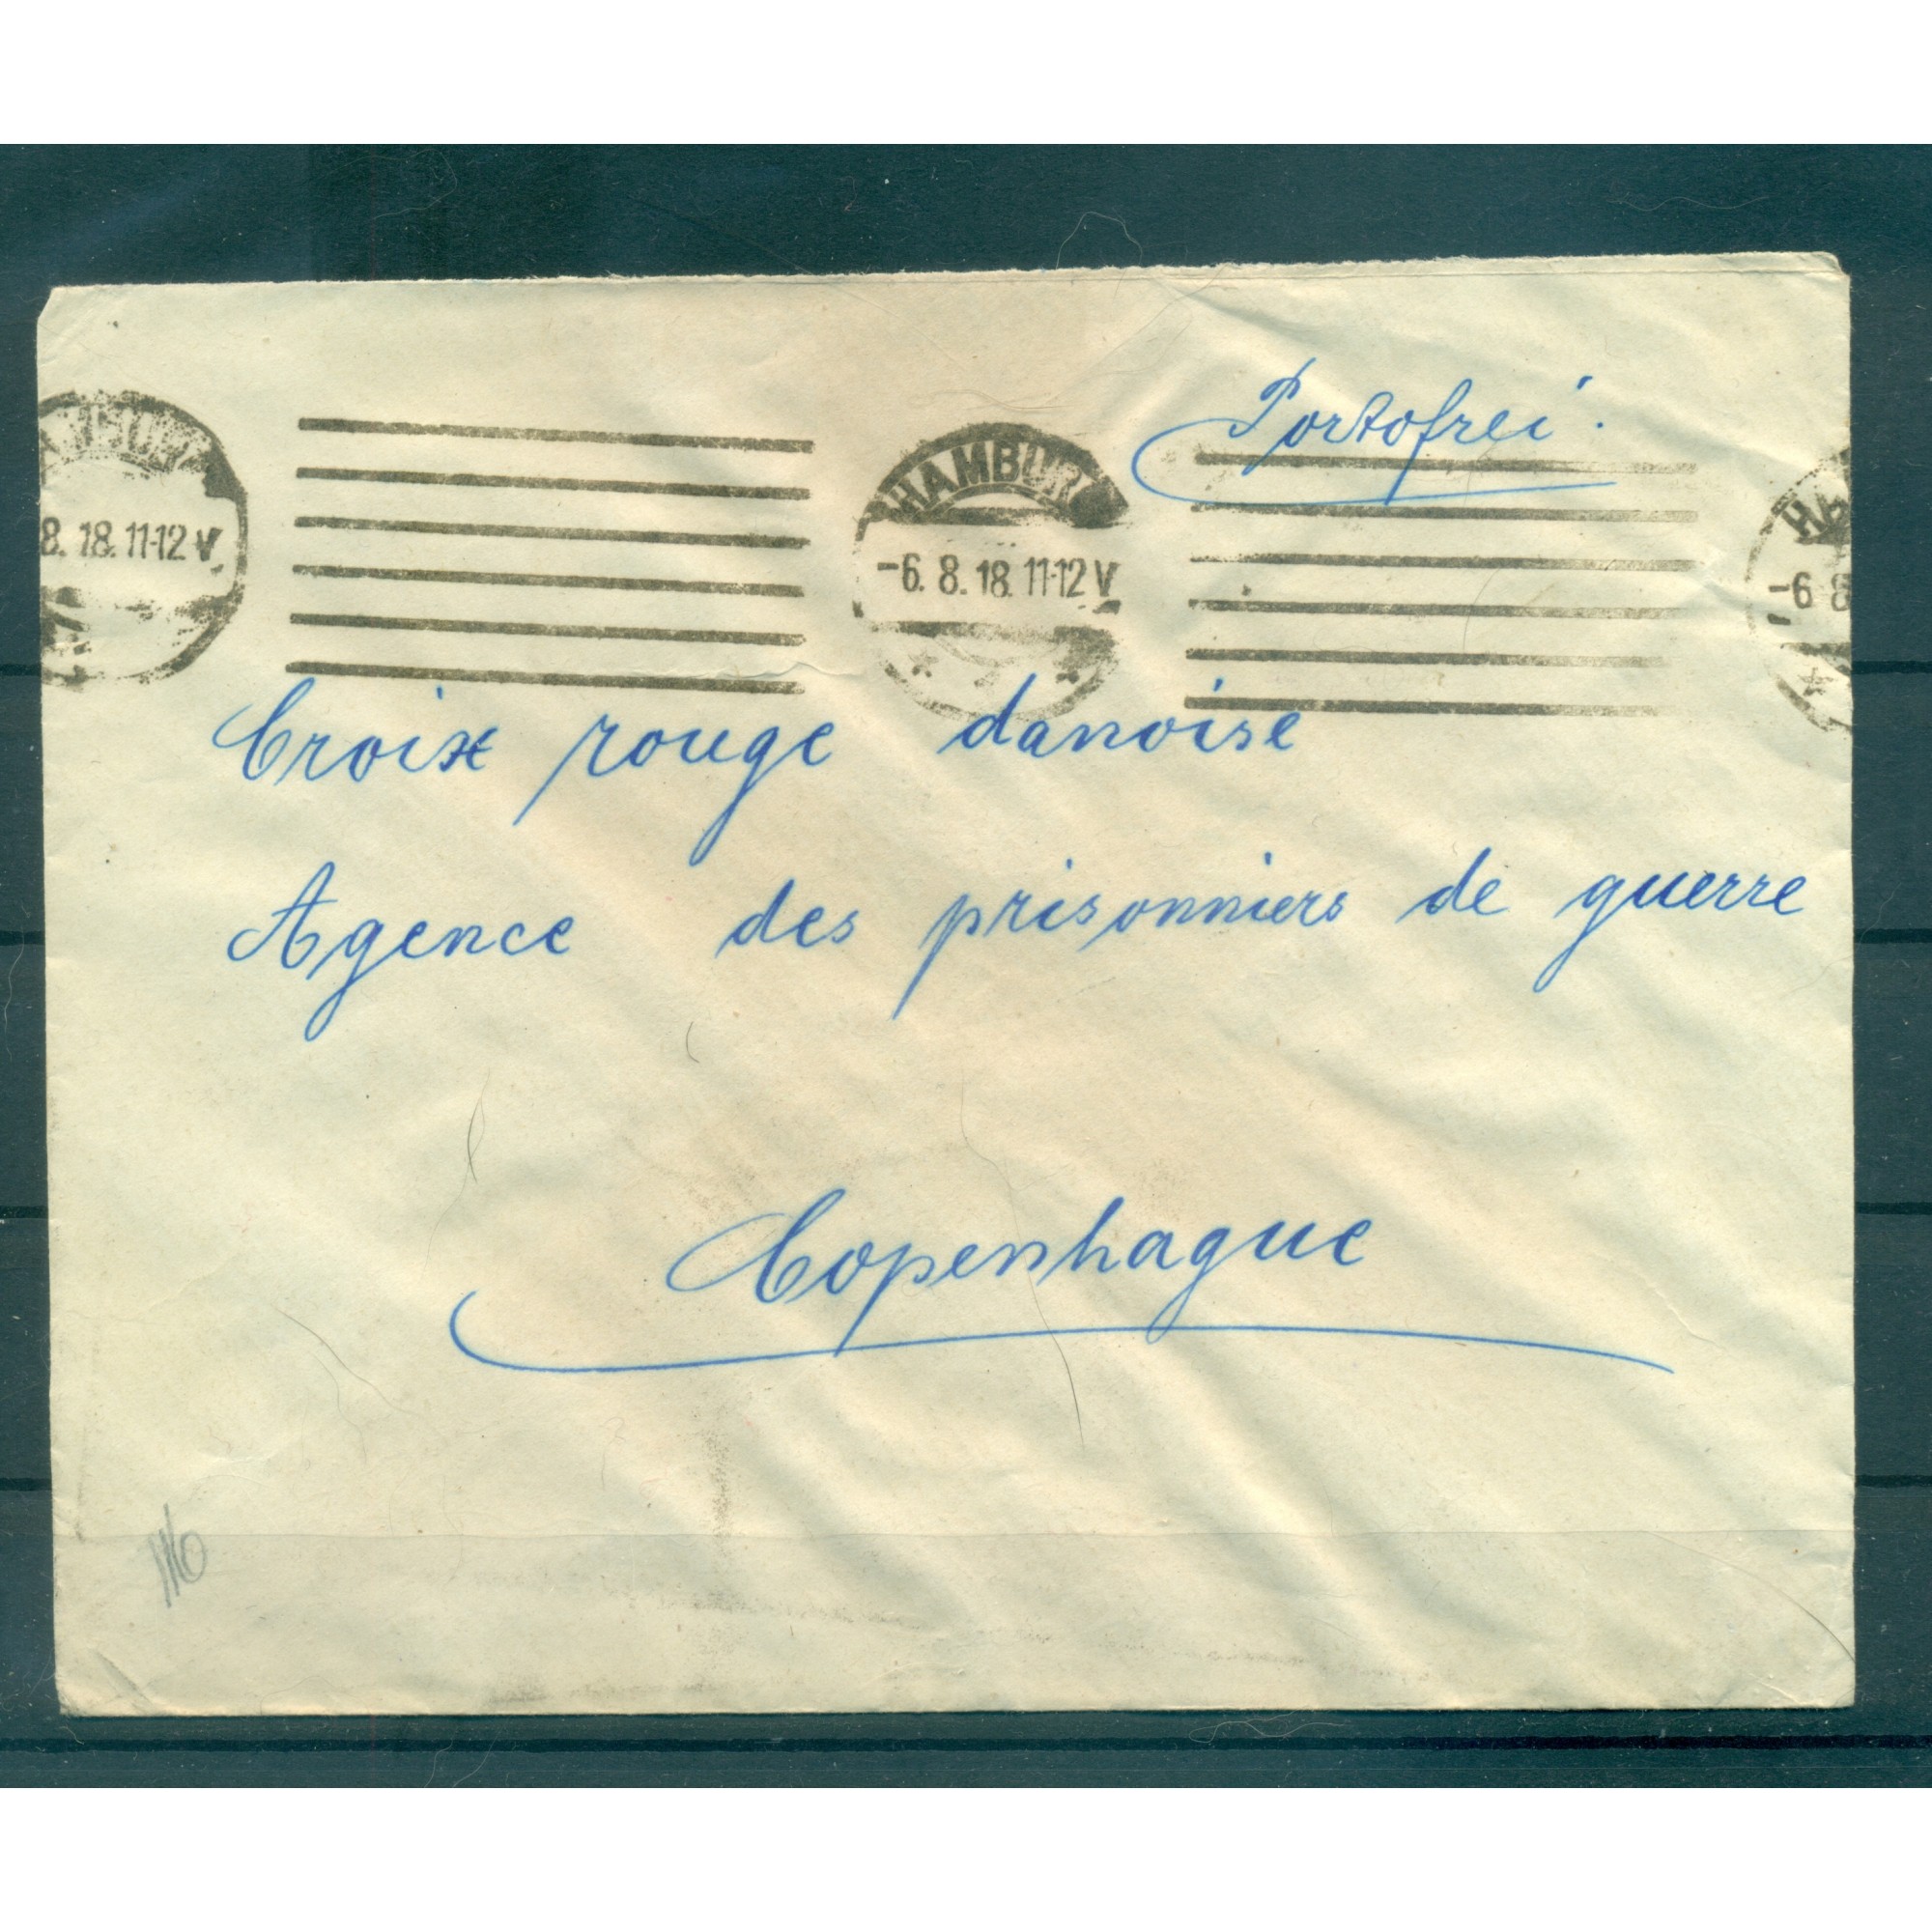 Portofrei.
8. 18. 11-12 V
HAMBURG
-6. 8. 18. 11-12 V
-6 8
Croix rouge danoise
Agence des prisonniers de guerre
Copenhague